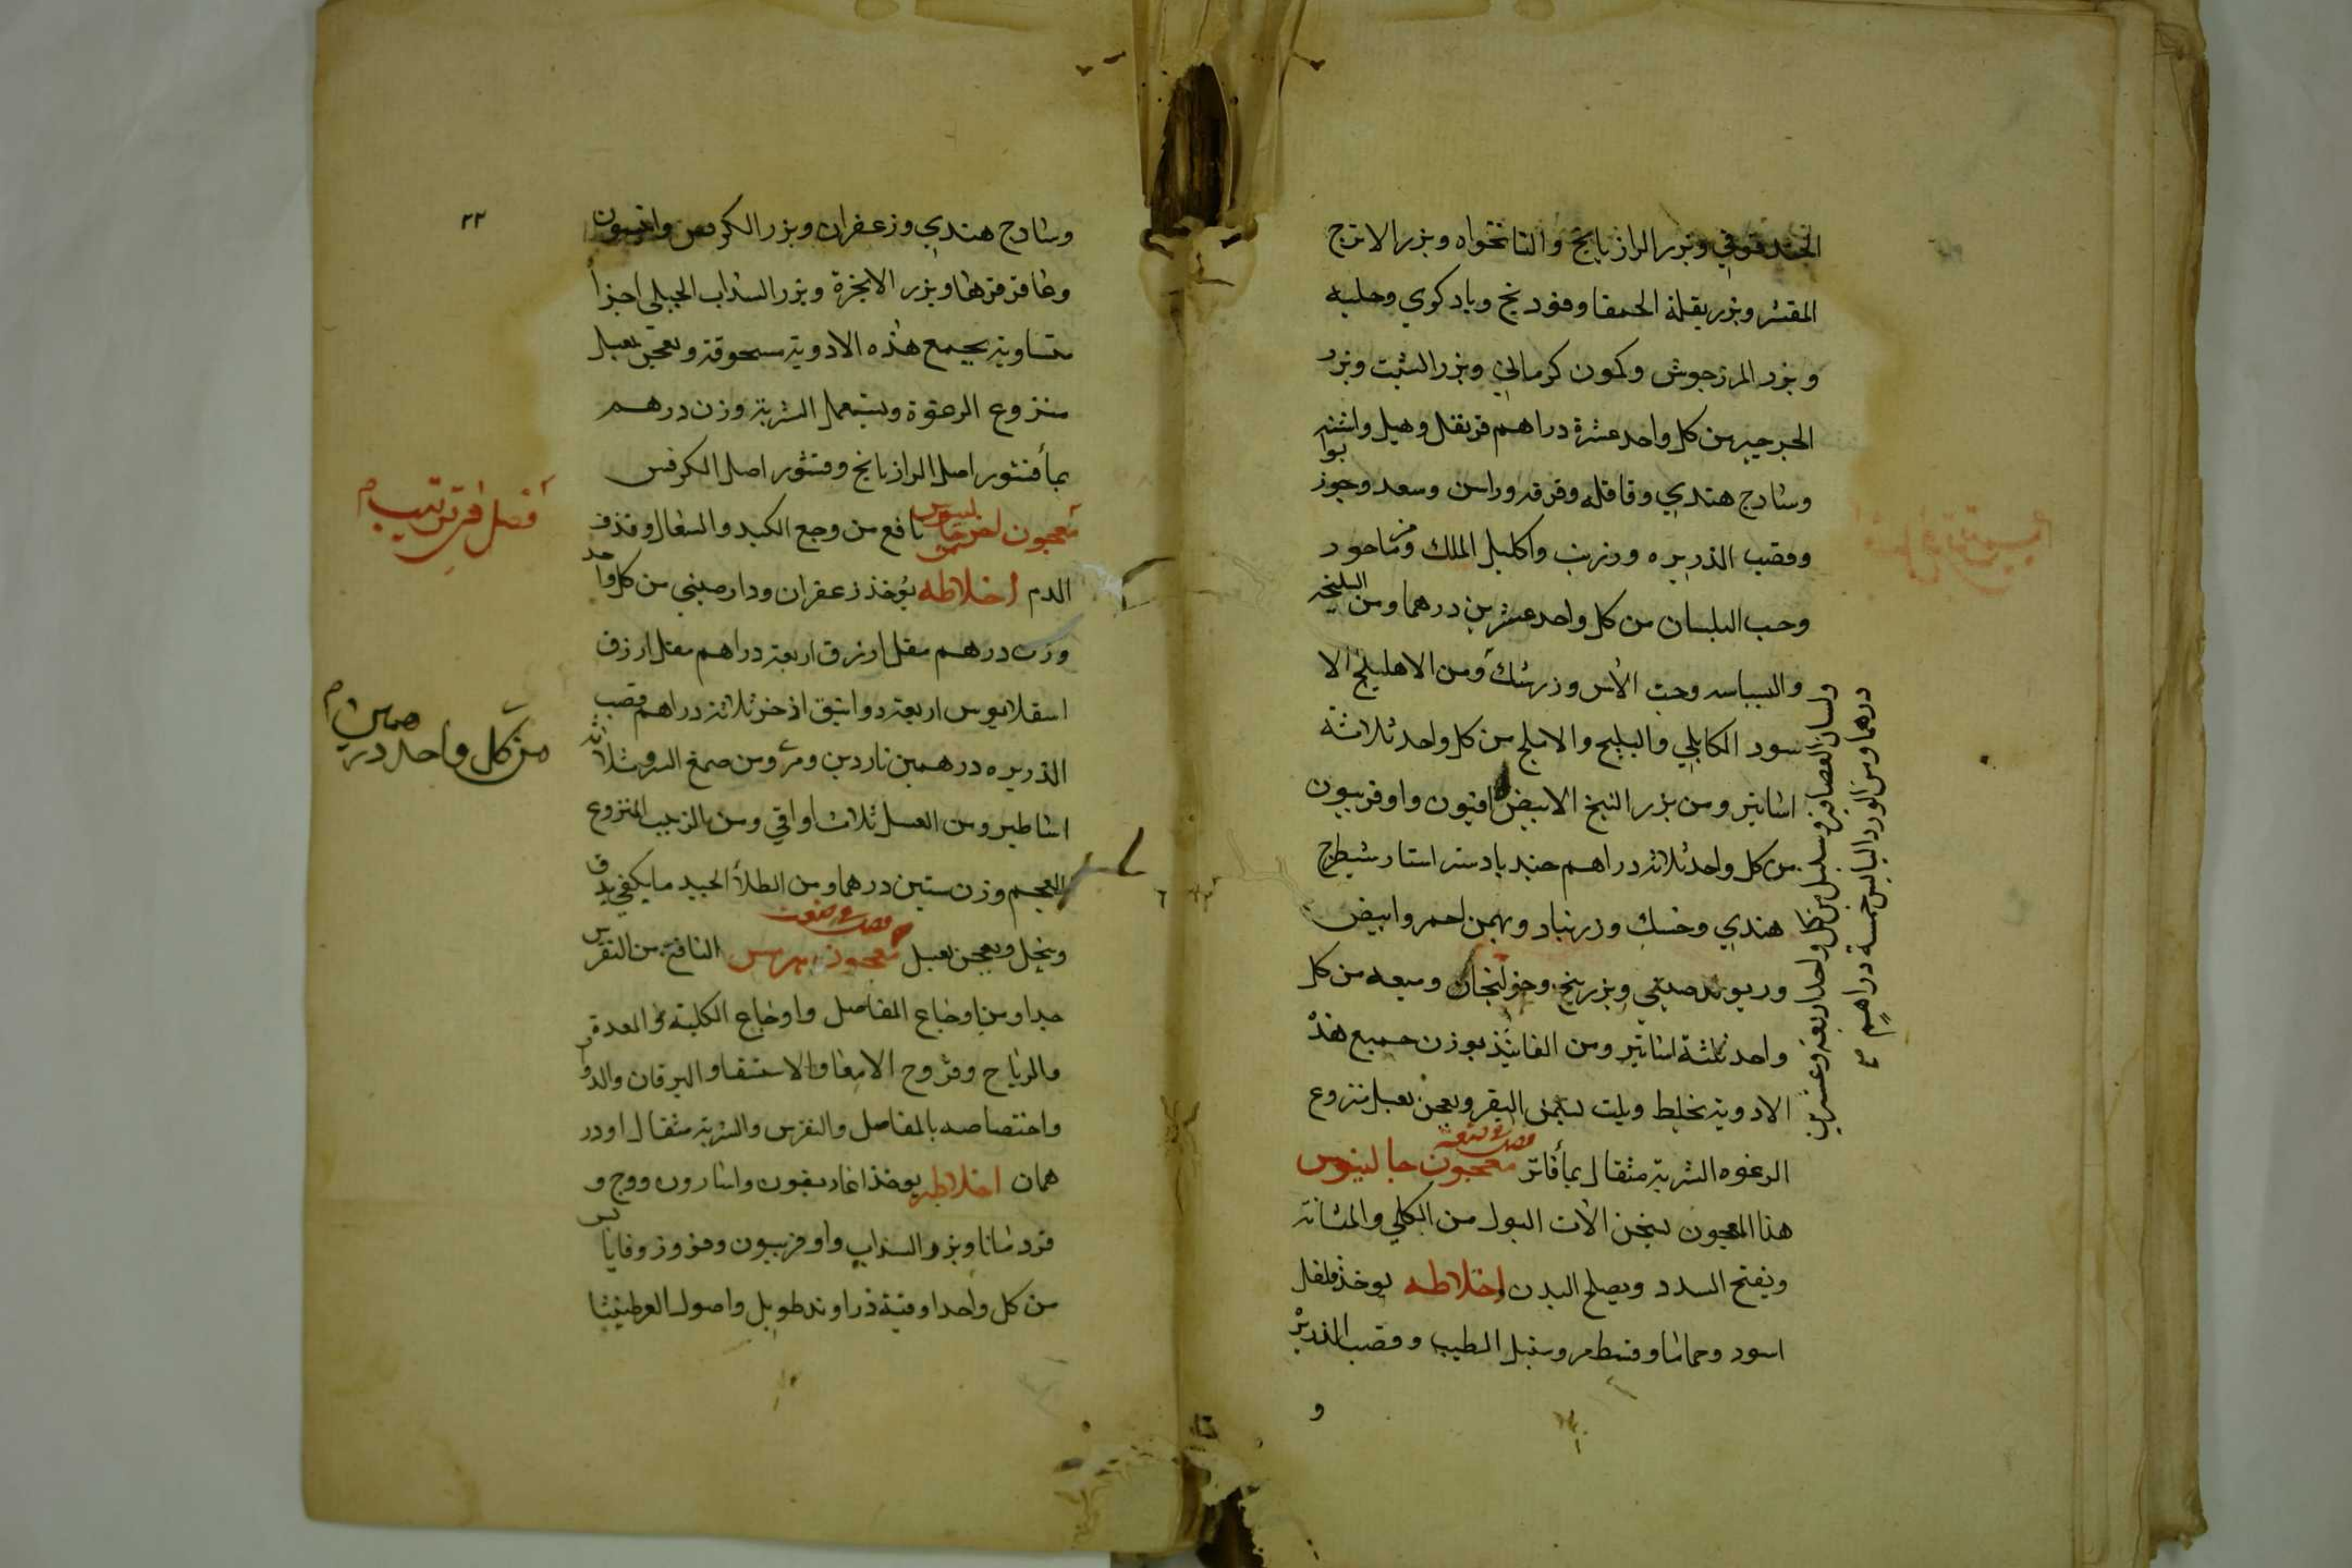 الحندقوقي وبزر الرازيانج والنانخواه وبزر الاترج
المقشر وبزر بقلة الحمقا وفودنج وبادكوي وحلبه
وبزر المرزجوش وكمون كرماني وبزر الشبت وبزر
الجرجير من كل واحد عشرة دراهم قرنفل وهيل واشنه
وسادج هندي وقاقله وقرفه وراسن وسعد وجوز بوا
وقصب الذريره وزرنب واكليل الملك ومرماحور
وحب البلسان من كل واحد عشرين درهما ومن السليخه
والبسباسه وحب الآس وزرنبك ومن الاهليلج الا
سود الكابلي والبليج والاملج من كل واحد ثلاثة
اساتير ومن بزر البنج الابيض افيون واوفربيون
من كل واحد ثلاثة دراهم جندبادستر استار شيطرج
هندي وخسك وزرنباد وبهمن احمر وابيض
وريوند صيني وبزر بنج وخولنجان وميعه من كل
واحد ثلثة اساتير ومن الفانيذ بوزن جميع هذه
الادوية تخلط ويلت بسمن البقر ويعجن بعسل منزوع
الرغوه الشربة مثقال بمآ فاتر معجون جالينوس
هذا المعجون يسخن الات البول من الكلي والمثانة
ويفتح السدد ويصلح البدن اخلاطه يوخذ فلفل
اسود وحماما وقسط مر وسنبل الطيب وقصب الذريرة
و
ولسان العصافير وسنبل من كل واحد اربعة وعشرين
درهما ومن الورد اليابس خمسة دراهم
٢٢
وسادج هندي وزعفران وبزر الكرفس وافيون
وعاقرقرها وبزر الانجرة وبزر السذاب الجبلي اجزآ
متساوية يجمع هذه الادوية مسحوقة وتعجن بعسل
منزوع الرغوة ويستعمل الشربة وزن درهم
بمآ قشور اصل الرازيانج وقشور اصل الكرفس
معجون اخر جالينوس نافع من وجع الكبد والسعال وقذف
الدم اخلاطه يؤخذ زعفران ودارصيني من كل واحد
وزن درهم مقل ازرق اربعة دراهم مقل ازرق
اسقلابيوس اربعة دوانيق اذخر ثلاثة دراهم قصب
الذريره درهمين ناردين ومر ومن صمغ السرو ثلاثة
اساطير ومن العسل ثلاث اواقي ومن الزبيب المنزوع
العجم وزن ستين درهما ومن الطلآ الجيد ما يكفي يدق
وينخل ويعجن بعسل معجون هرمس النافع من النقرس
جدا ومن اوجاع المفاصل واوجاع الكلية والمعدة
والرياح وقروح الامعا والاستسقا واليرقان والدوا
واختصاصه بالمفاصل والنقرس والشربة مثقال او در
همان اخلاطه يوخذ اغاريقون واسارون ووج و
قردمانا وبزر السذاب واوفربيون ومو وزوفا يابس
من كل واحد اوقية زراوند طويل واصول العرطنيثا
فصل في ترتيب م
من كل واحد درهمين م